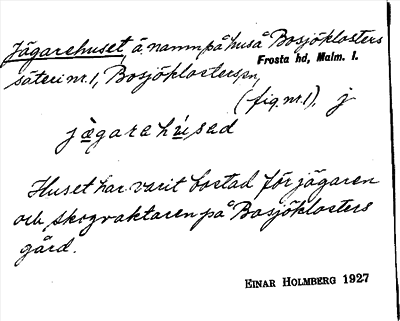 Jägarehuset, ä. namn på hus å Bosjöklosters
Frosta hd, Malm. l.
säteri nr. 1, Bosjöklosters sn,
(fig. nr. 1). j
jägarehúsəd
Huset har varit bostad för jägaren
och skogvaktaren på Bosjöklosters
gård.
EINAR HOLMBERG 1927